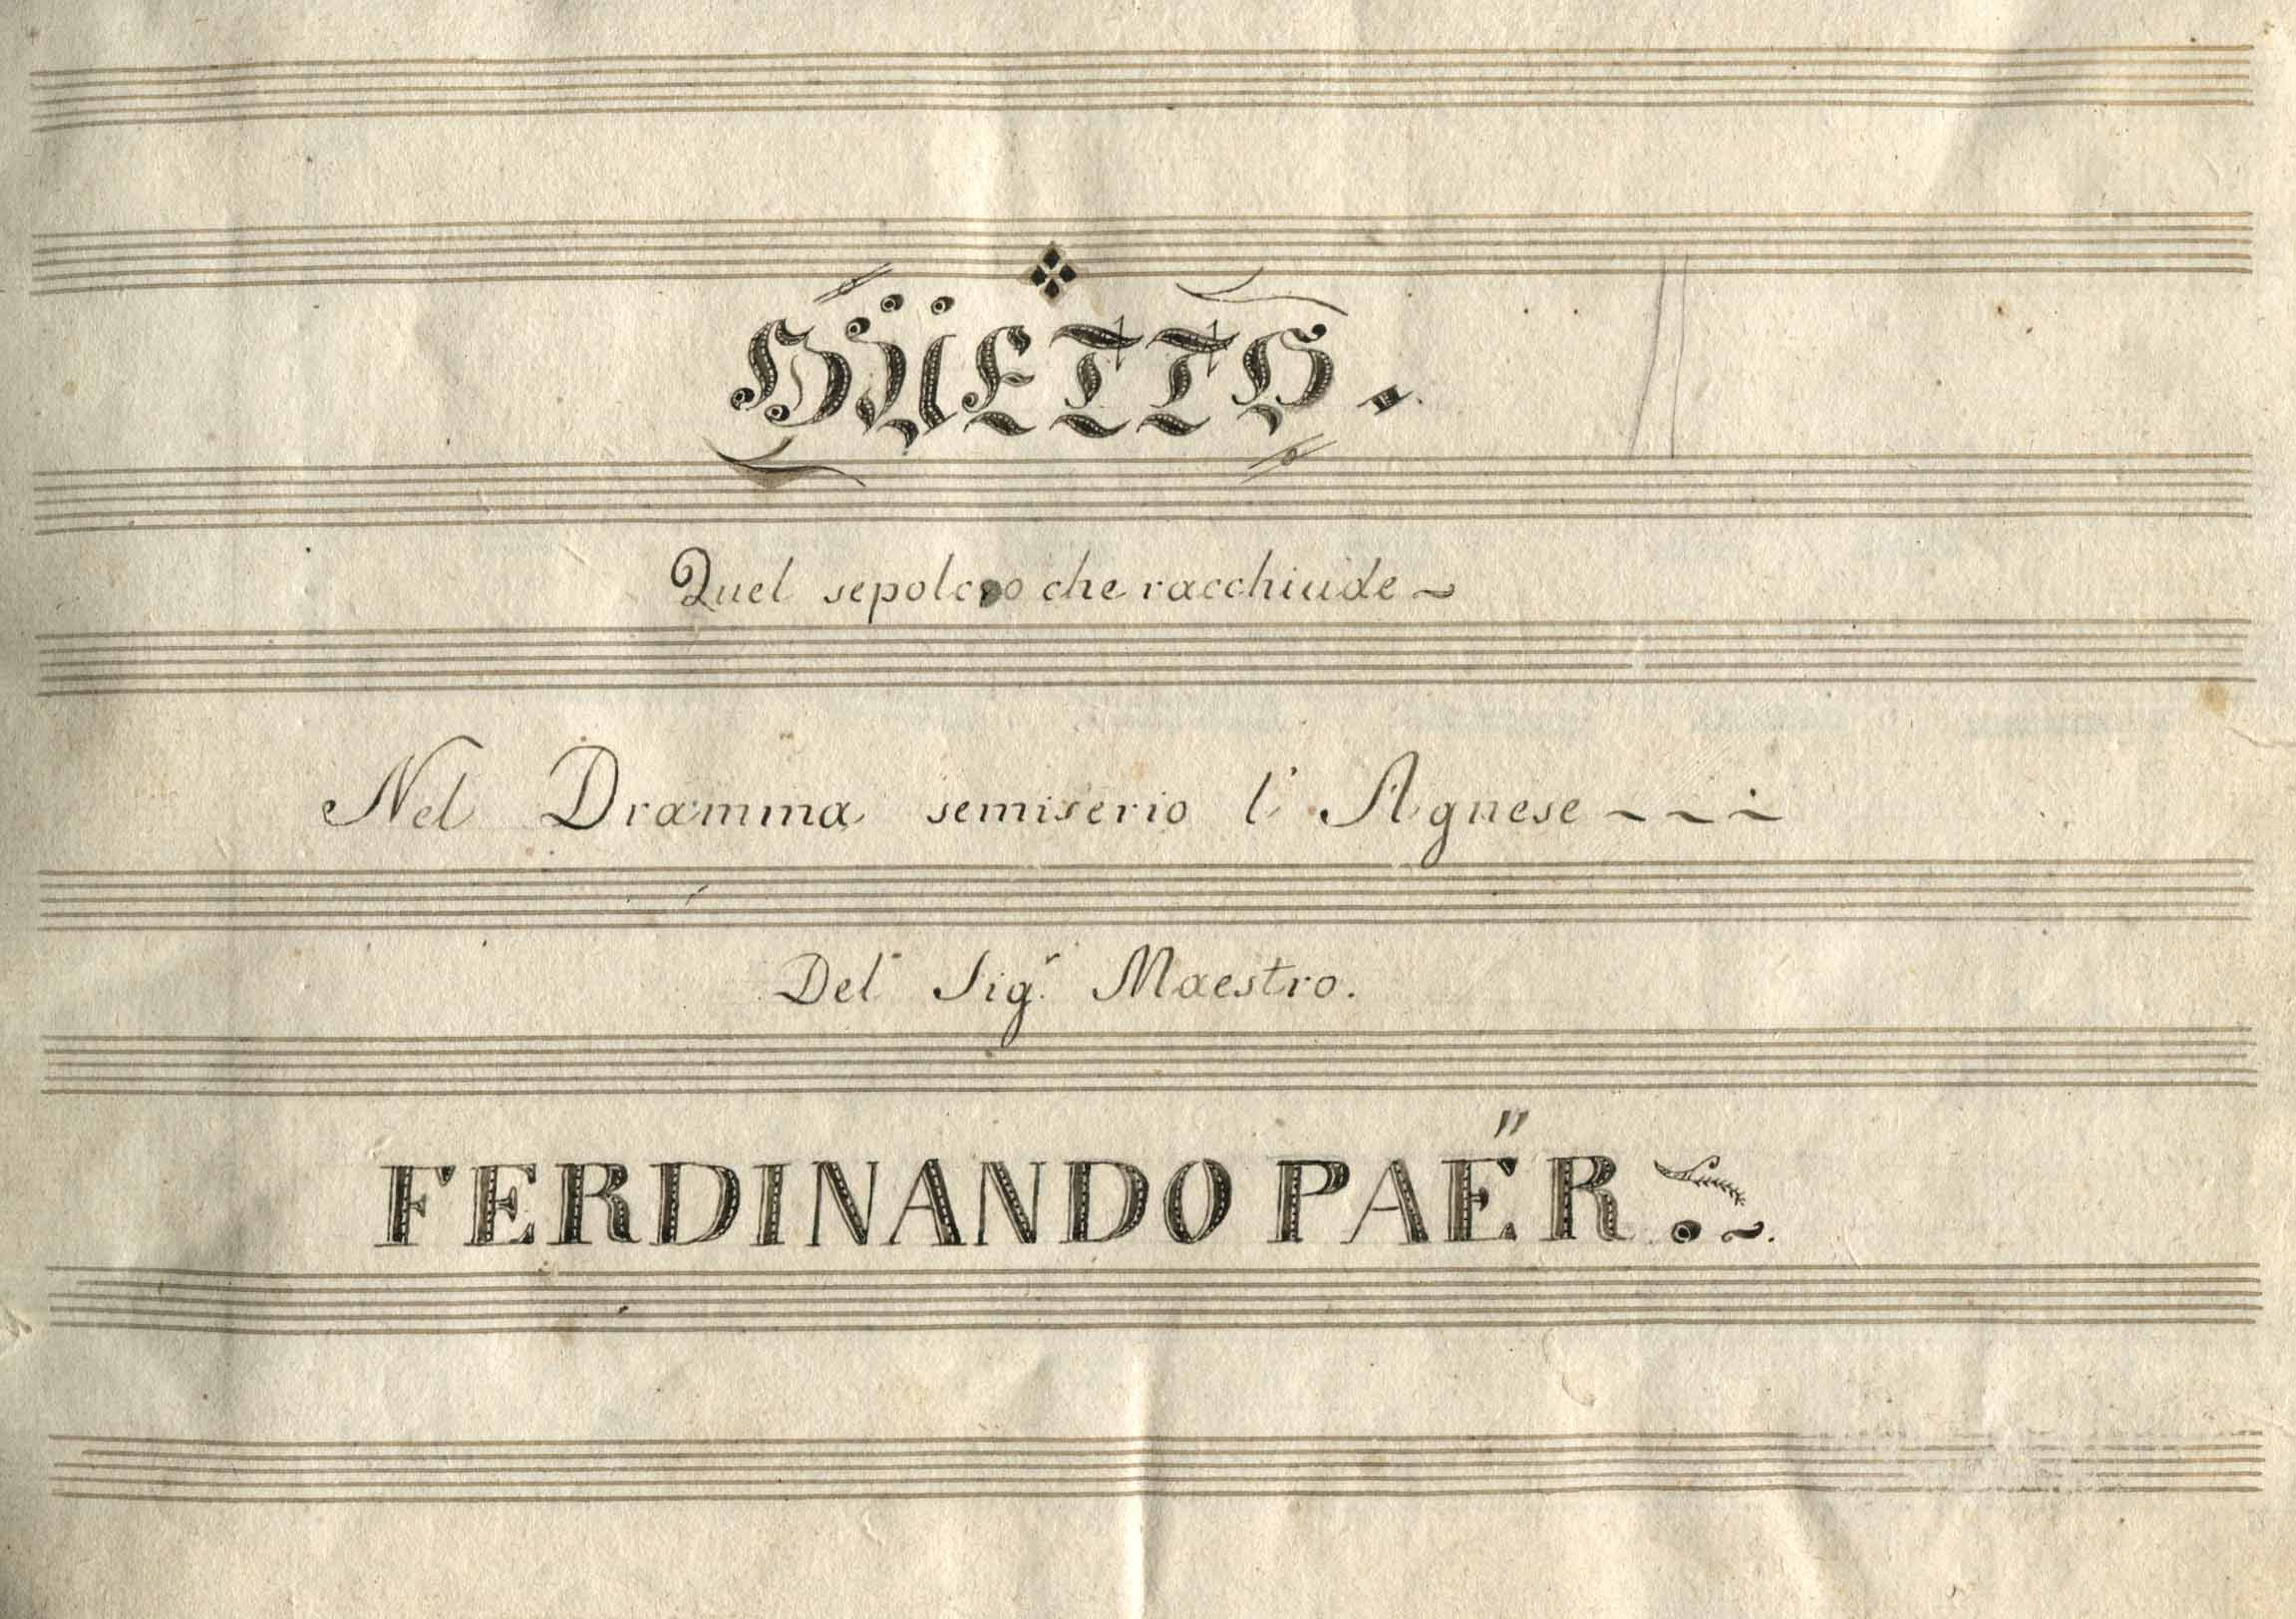 DÜETTO.
Quel sepolcro che racchiude ~
Nel Dramma semiserio l'Agnese ~ ~ ~
Del Sig.r Maestro.
FERDINANDO PAËR.